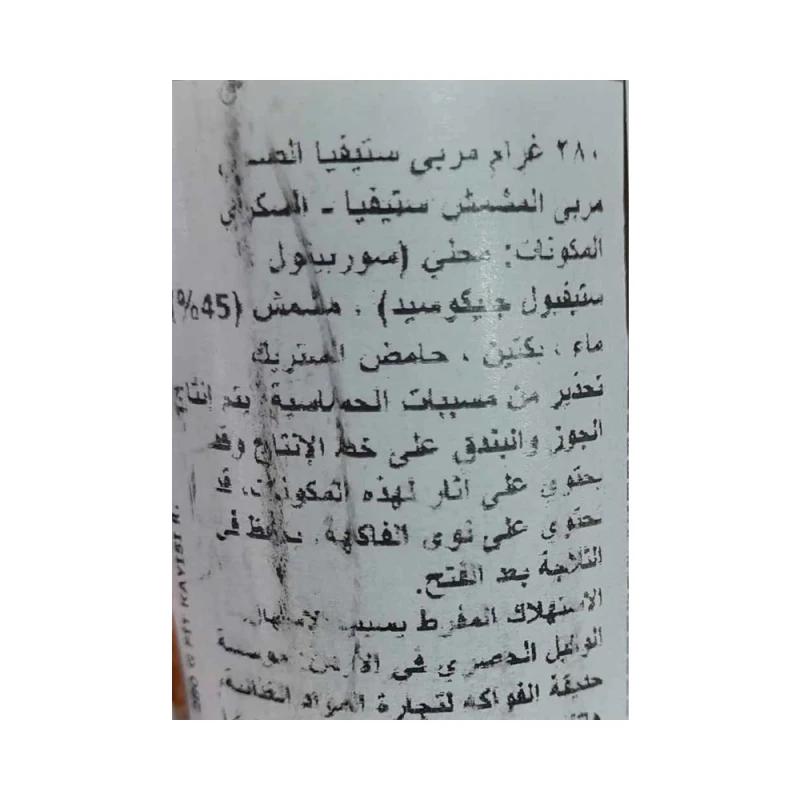 ٢٨٠ غرام مربى ستيفيا
مربى المشمش ستيفيا -
المكونات: محلي (سوربيتول
ستيفيول جليكوسيد) ، مشمش (45%)
ماء ، بكتين ، حامض الستريك
تحذير من مسببات الحساسية: يتم إنتاج
الجوز والبندق على خط الإنتاج وقد
يحتوي على آثار لهذه المكونات، قد
يحتوي على نوى الفاكهة. يحفظ في
الثلاجة بعد الفتح.
الاستهلاك المفرط يسبب الإسهال.
الوكيل الحصري في الأردن: مؤسسة
حديقة الفواكه لتجارة المواد الغذائية
KAYISI R.